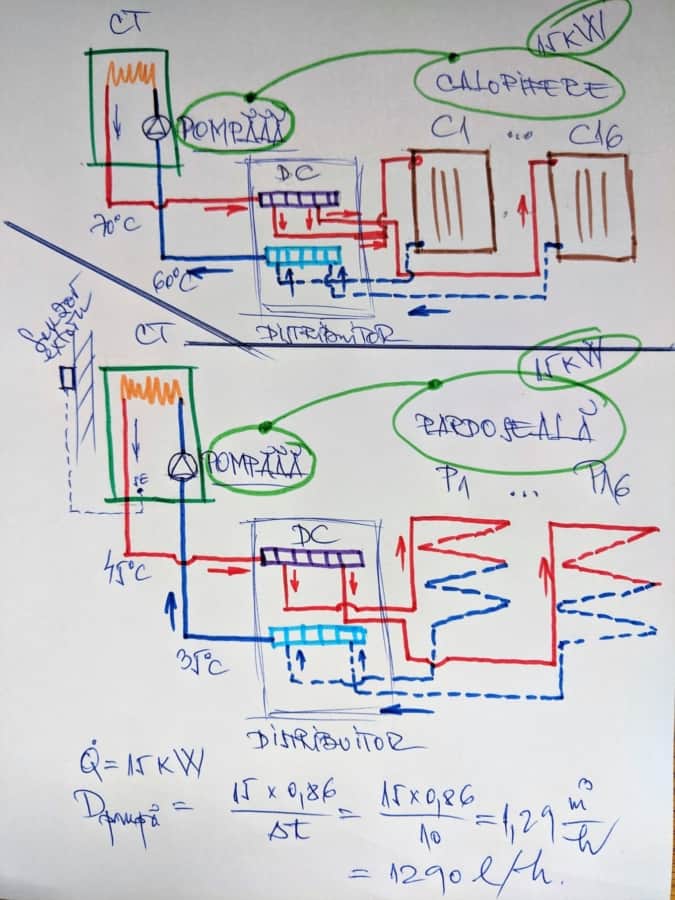 CT
15 KW
CALORIFERE
POMPĂĂĂ
C1 ... C16
DC
70°C
60°C
DISTRIBUITOR
Senzor
extern
CT
15 KW
PARDOSEALĂ
POMPĂĂĂ
P1 ... P16
SE
DC
45°C
35°C
DISTRIBUITOR
Q̇ = 15 KW
Dpompă = 15 x 0,86 / Δt = 15 x 0,86 / 10 = 1,29 m³/h
= 1290 l/h.